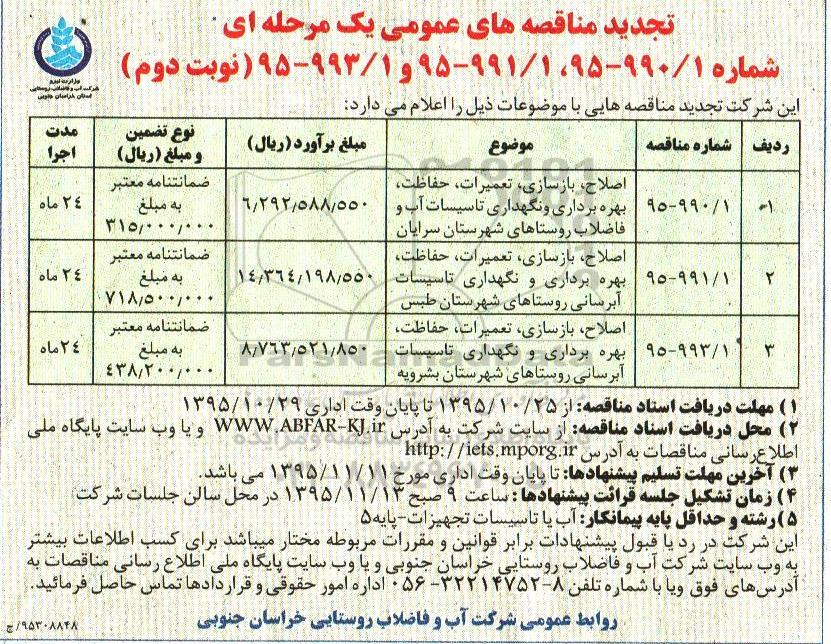 تجدید مناقصه های عمومی یک مرحله ای
شماره ۹۵-۹۹۰/۱، ۹۵-۹۹۱/۱ و ۹۵-۹۹۳/۱ (نوبت دوم)
وزارت نیرو
شرکت آب و فاضلاب روستایی
استان خراسان جنوبی
این شرکت تجدید مناقصه هایی با موضوعات ذیل را اعلام می دارد:
ردیف شماره مناقصه موضوع مبلغ برآورد (ریال) نوع تضمین و مبلغ (ریال) مدت اجرا
۱ ۹۵-۹۹۰/۱ اصلاح، بازسازی، تعمیرات، حفاظت، بهره برداری و نگهداری تاسیسات آب و فاضلاب روستاهای شهرستان سرایان ۶,۲۹۲,۵۸۸,۵۵۰ ضمانتنامه معتبر به مبلغ ۳۱۵,۰۰۰,۰۰۰ ۲۴ ماه
۲ ۹۵-۹۹۱/۱ اصلاح، بازسازی، تعمیرات، حفاظت، بهره برداری و نگهداری تاسیسات آبرسانی روستاهای شهرستان طبس ۱۴,۳۶۴,۱۹۸,۵۵۰ ضمانتنامه معتبر به مبلغ ۷۱۸,۵۰۰,۰۰۰ ۲۴ ماه
۳ ۹۵-۹۹۳/۱ اصلاح، بازسازی، تعمیرات، حفاظت، بهره برداری و نگهداری تاسیسات آبرسانی روستاهای شهرستان بشرویه ۸,۷۶۳,۵۲۱,۸۵۰ ضمانتنامه معتبر به مبلغ ۴۳۸,۲۰۰,۰۰۰ ۲۴ ماه
۱) مهلت دریافت اسناد مناقصه: از ۱۳۹۵/۱۰/۲۵ تا پایان وقت اداری ۱۳۹۵/۱۰/۲۹
۲) محل دریافت اسناد مناقصه: از سایت شرکت به آدرس WWW.ABFAR-KJ.ir و یا وب سایت پایگاه ملی
اطلاع رسانی مناقصات به آدرس http://iets.mporg.ir
۳) آخرین مهلت تسلیم پیشنهادها: تا پایان وقت اداری مورخ ۱۳۹۵/۱۱/۱۱ می باشد.
۴) زمان تشکیل جلسه قرائت پیشنهادها: ساعت ۹ صبح ۱۳۹۵/۱۱/۱۳ در محل سالن جلسات شرکت
۵) رشته و حداقل پایه پیمانکار: آب یا تاسیسات تجهیزات-پایه۵
این شرکت در رد یا قبول پیشنهادات برابر قوانین و مقررات مربوطه مختار میباشد برای کسب اطلاعات بیشتر
به وب سایت شرکت آب و فاضلاب روستایی خراسان جنوبی و یا وب سایت پایگاه ملی اطلاع رسانی مناقصات به
آدرس‌های فوق ویا با شماره تلفن ۸-۳۲۲۱۴۷۵۲-۰۵۶ اداره امور حقوقی و قراردادها تماس حاصل فرمائید.
روابط عمومی شرکت آب و فاضلاب روستایی خراسان جنوبی
۹۵۳۰۸۸۴۸/ج
ParsNamadData